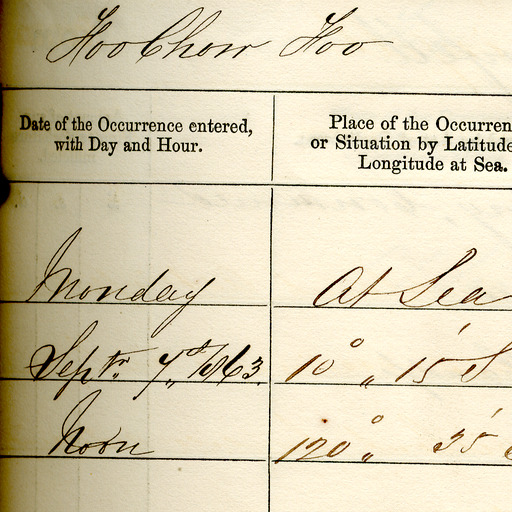 Foo Chow Foo
Date of the Occurrence entered,
with Day and Hour.
Place of the Occurren
or Situation by Latitude
Longitude at Sea.
Monday
At Sea
Septr 7d/1863.
10° " 15' S
Noon
120° " 35'